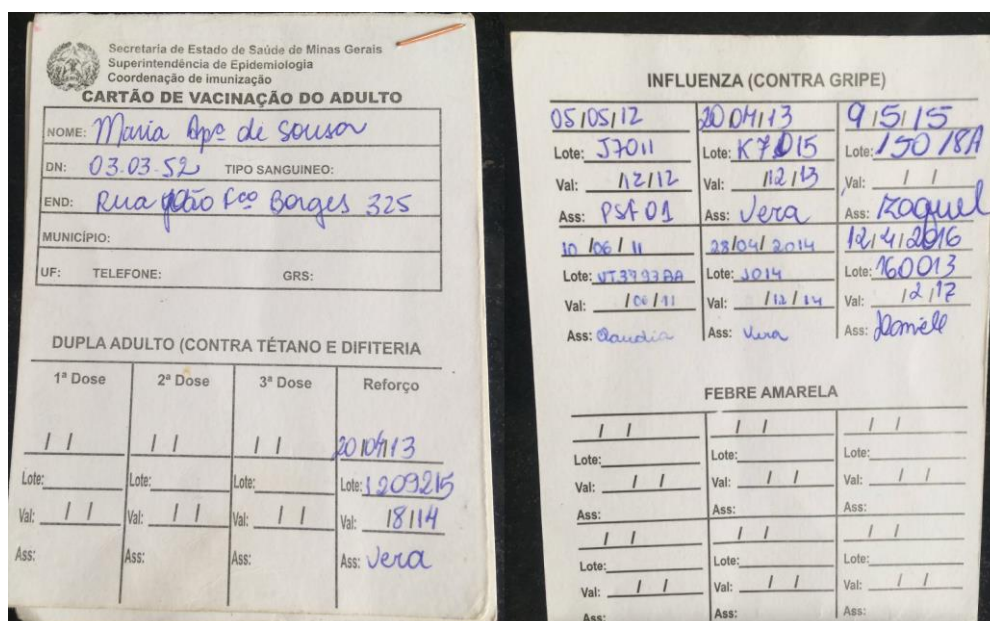 Secretaria de Estado de Saúde de Minas Gerais
Superintendência de Epidemiologia
Coordenação de imunização
CARTÃO DE VACINAÇÃO DO ADULTO
NOME: Maria Apª de Sousa
DN: 03.03.52 TIPO SANGUINEO:
END: Rua João Fco Borges 325
MUNICÍPIO:
UF: TELEFONE: GRS:
DUPLA ADULTO (CONTRA TÉTANO E DIFITERIA
1ª Dose 2ª Dose 3ª Dose Reforço
/ / / / / / 20/04/13
Lote: Lote: Lote: Lote: 1209215
Val: / / Val: / / Val: / / Val: /8/14
Ass: Ass: Ass: Ass: Vera
INFLUENZA (CONTRA GRIPE)
05/05/12 20/04/13 9/5/15
Lote: J7011 Lote: K7015 Lote: 15018A
Val: /12/12 Val: /12/13 Val: / /
Ass: PSF 01 Ass: Vera Ass:
10/06/11 28/04/2014 12/4/2016
Lote: Lote: J014 Lote: 160013
Val: /06/11 Val: /12/14 Val: /2/17
Ass: Claudia Ass: Vera Ass:
FEBRE AMARELA
/ / / / / /
Lote: Lote: Lote:
Val: / / Val: / / Val: / /
Ass: Ass: Ass:
/ / / / / /
Lote: Lote: Lote:
Val: / / Val: / / Val: / /
Ass: Ass: Ass: